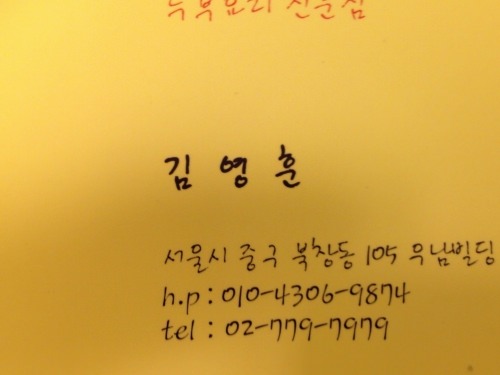 두부요리 전문점
김 영 훈
서울시 중구 북창동 105 우남빌딩
h.p : 010-4306-9874
tel : 02-779-7979